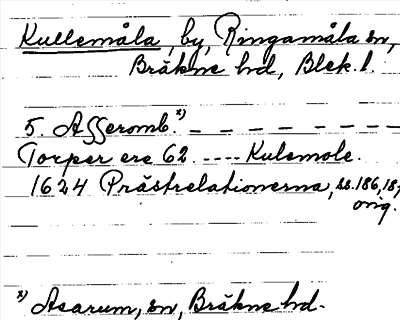 Kullemåla, by, Ringamåla sn,
Bräkne hd, Blek. l.
5. Asseromb.x) — — — — — —
Torper ere 62. ---- Kulemole.
1624 Prästrelationerna, ss. 186, 187
orig.
x) Asarum, sn, Bräkne hd.